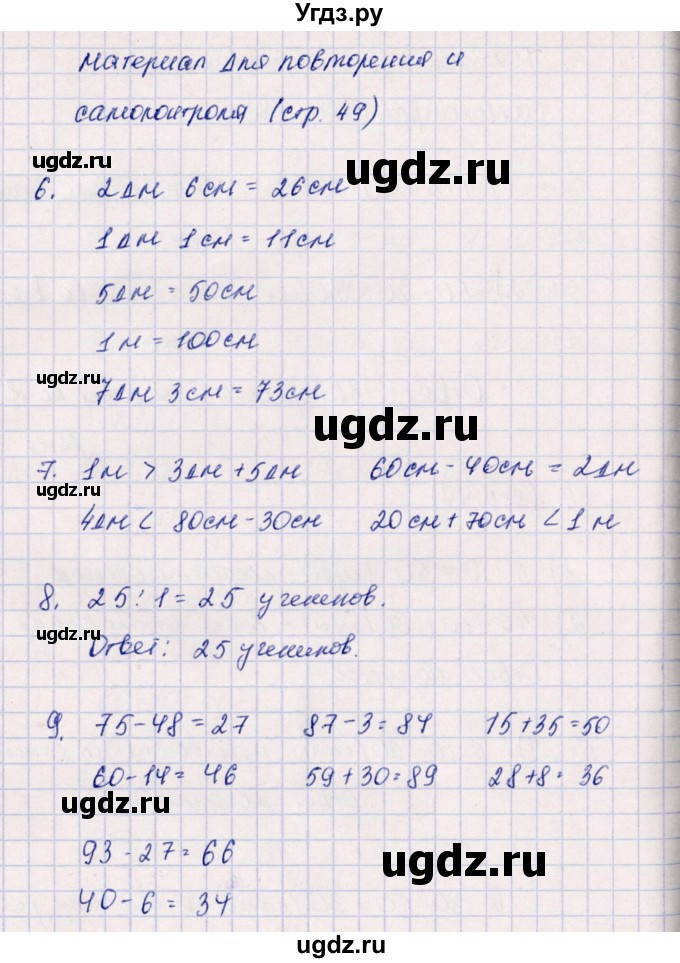 Угдз.ру
Материал для повторения и
самоконтроля (стр. 49)
ugdz.ru
ugdz.ru
6. 2дм 6см = 26см
1дм 1см = 11см
5дм = 50см
1м = 100см
ugdz.ru
7дм 3см = 73см
ugdz.ru
7. 1м > 3дм + 5дм 60см - 40см = 2дм
ugdz.ru
4дм < 80см - 30см 20см + 70см < 1м
8. 25 : 1 = 25 учеников.
ugdz.ru
Ответ: 25 учеников.
ugdz.ru
9. 75 - 48 = 27 87 - 3 = 84 15 + 35 = 50
60 - 14 = 46 59 + 30 = 89 28 + 8 = 36
ugdz.ru
93 - 27 = 66
ugdz.ru
40 - 6 = 34
ugdz.ru